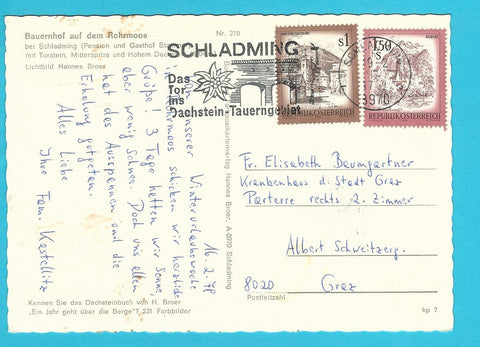 Bauernhof auf dem Rohrmoos
bei Schladming (Pension und Gasthof
mit Torstein, Mitterspitze und Hohem
Lichtbild Hannes Broer
Nr. 219
SCHLADMING
Das
Tor
ins
Dachstein-Tauerngebiet
S1
REPUBLIK ÖSTERREICH
1.50
REPUBLIK ÖSTERREICH
8970
16.2.78
unserer Winterurlaubswoche
Rohrmoos schicken wir herzliche
Grüße! 3 Tage hatten wir Sonne,
aber wenig Schnee. Doch uns allen
hat das Ausspannen und die
Erholung gutgetan.
Alles Liebe
Ihre Fam. Kastellitz
Postkartenverlag Hannes Broer, A-8970 Schladming
Fr. Elisabeth Baumgartner
Krankenhaus d. Stadt Graz
Parterre rechts 2. Zimmer
Albert Schweitzerg.
8020 Graz
Postleitzahl
Kennen Sie das Dachsteinbuch von H. Broer
"Ein Jahr geht über die Berge"? 231 Farbbilder
kp 7